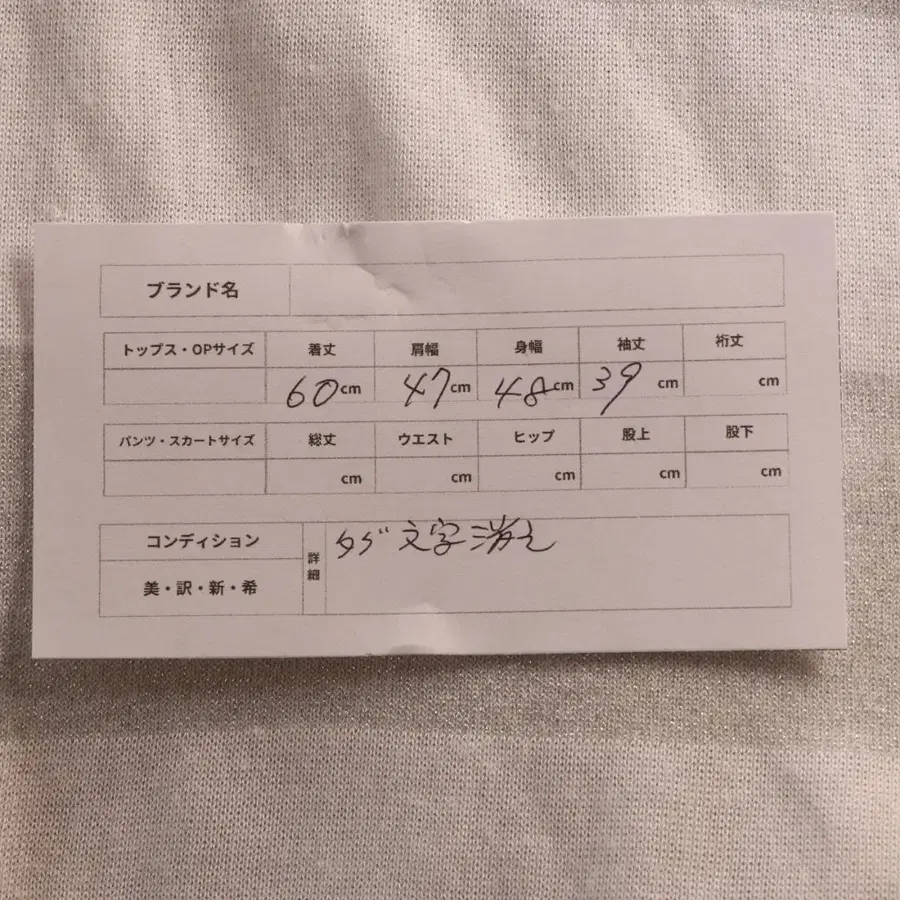 ブランド名
トップス・OPサイズ 着丈 肩幅 身幅 袖丈 裄丈
60cm 47cm 48cm 39cm cm
パンツ・スカートサイズ 総丈 ウエスト ヒップ 股上 股下
cm cm cm cm cm
コンディション 詳細 タグ文字消え
美・訳・新・希